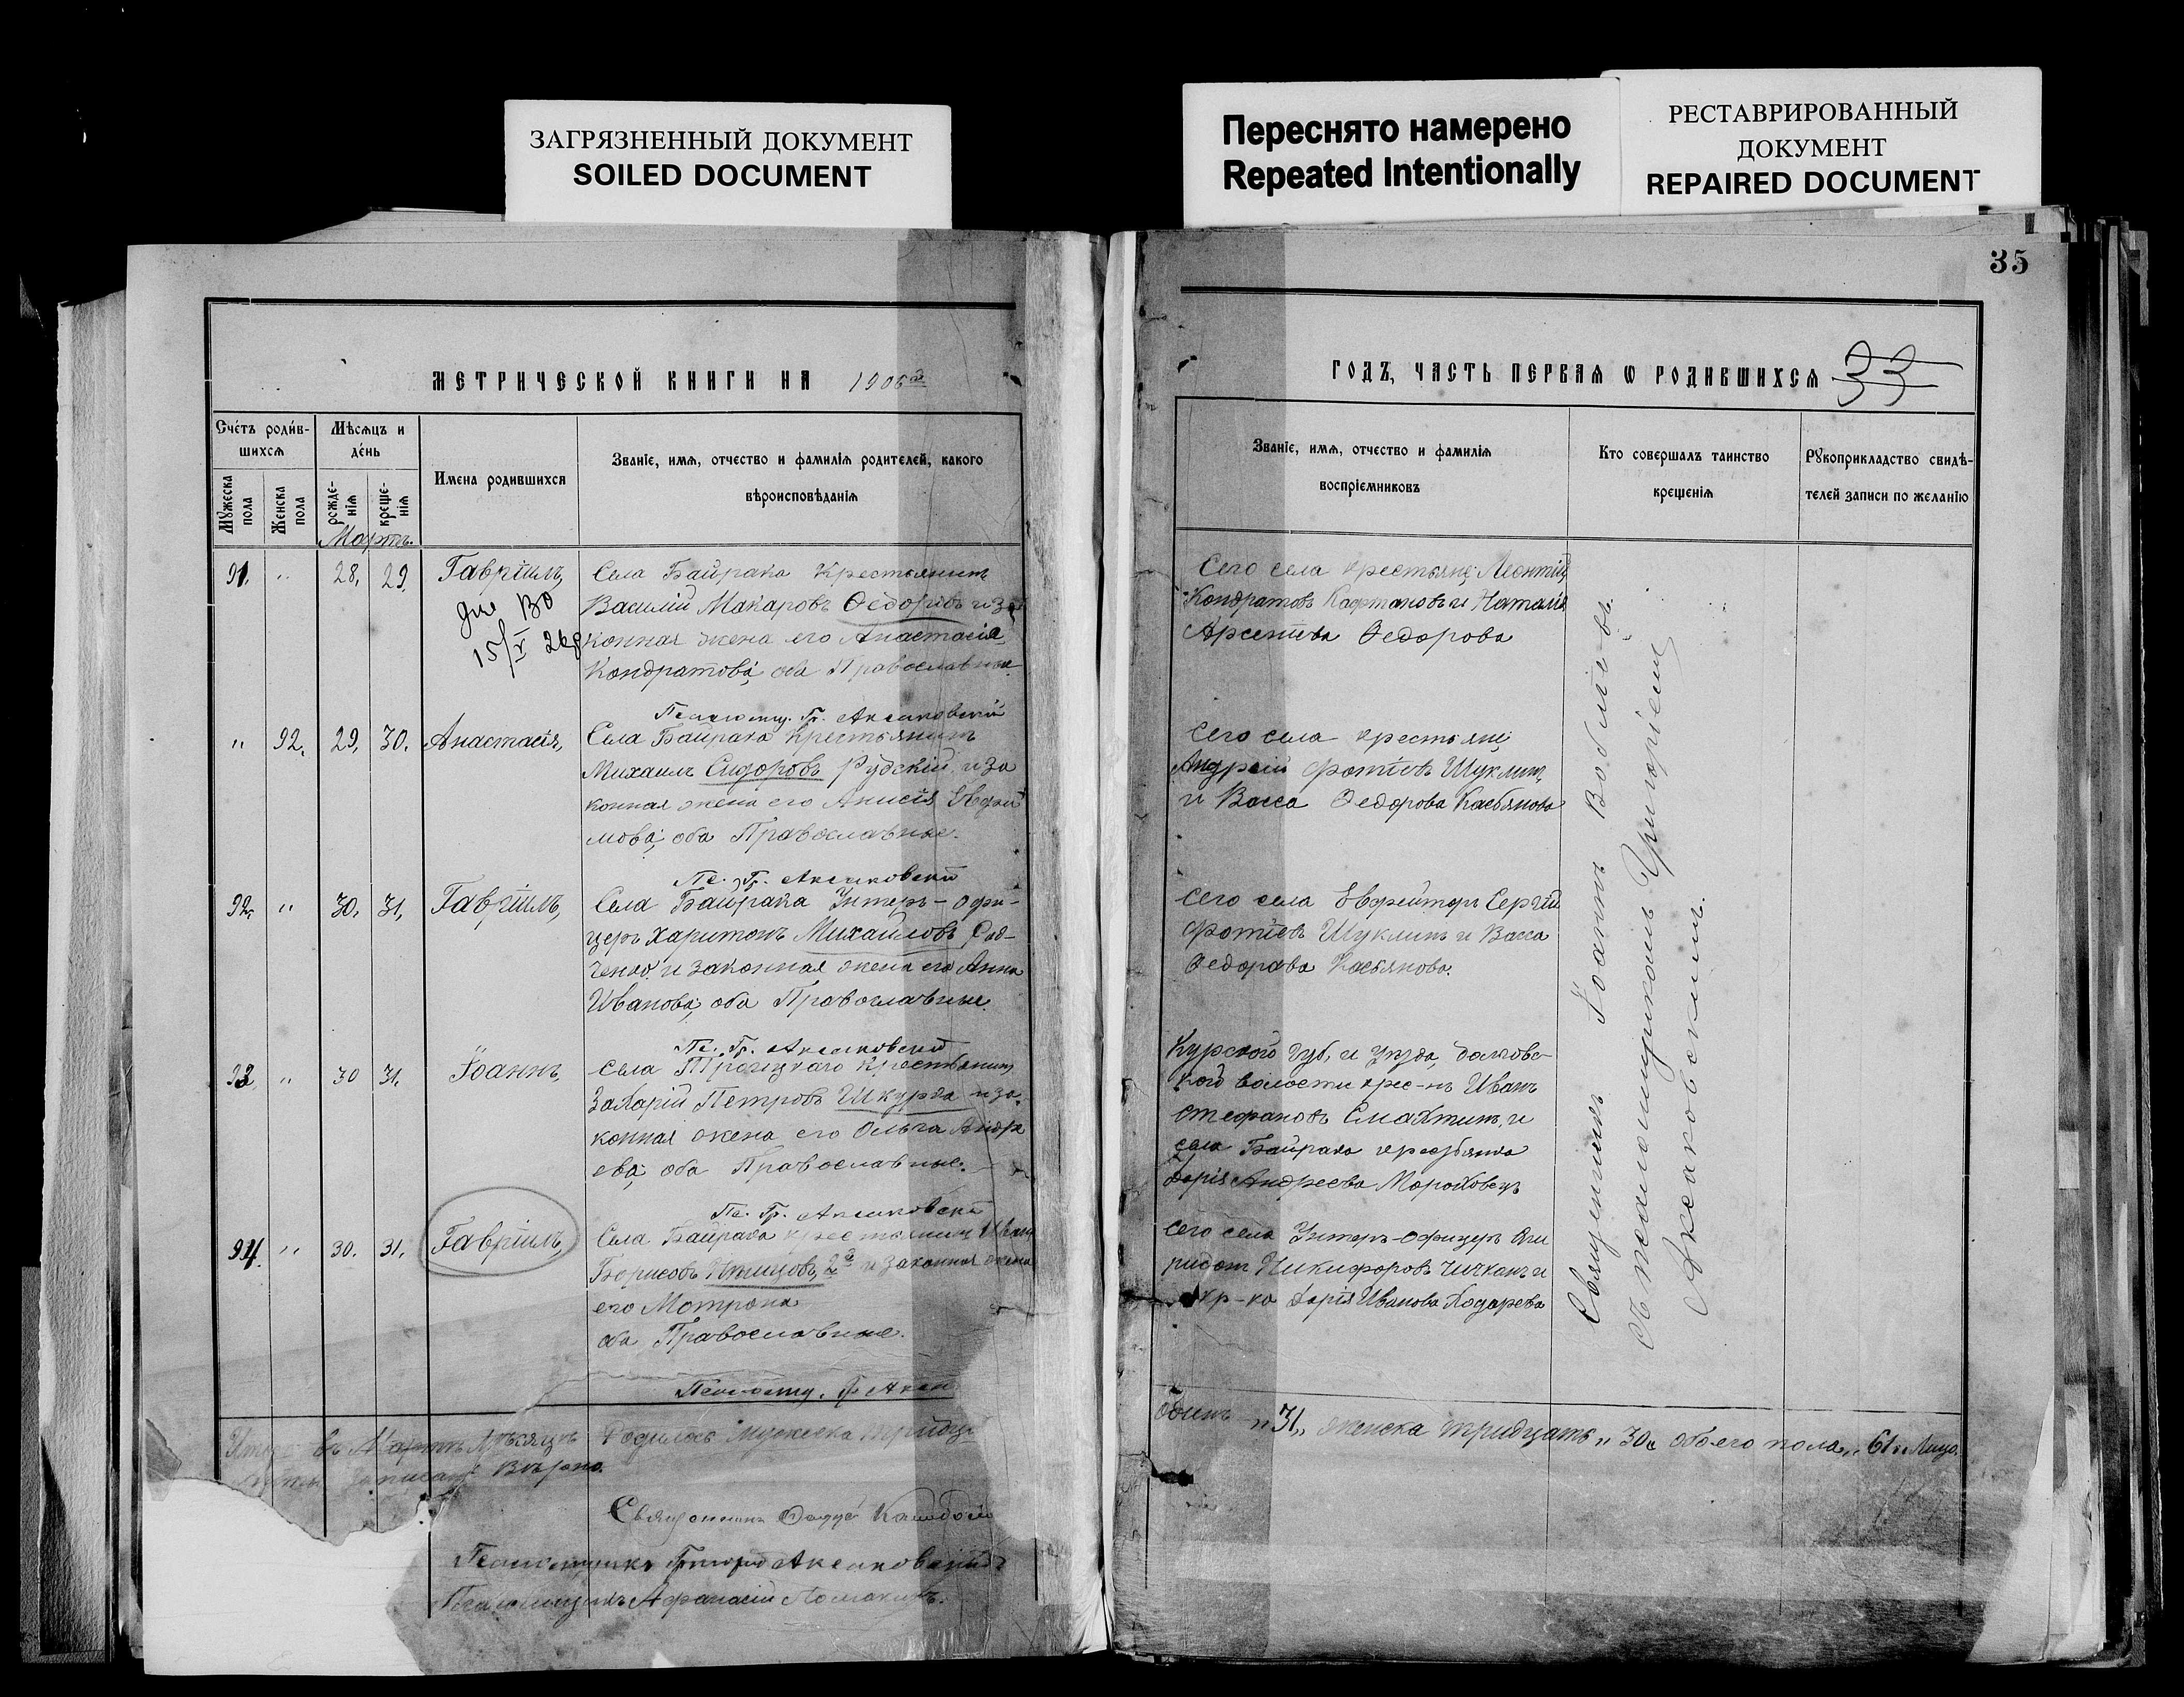 ЗАГРЯЗНЕННЫЙ ДОКУМЕНТ
SOILED DOCUMENT
Переснято намерено
Repeated Intentionally
РЕСТАВРИРОВАННЫЙ
ДОКУМЕНТ
REPAIRED DOCUMENT
МЕТРИЧЕСКОЙ КНИГИ НА 1906
Счетъ родив-
шихся
Мѣсяцъ и
день
Мужеска
пола
Женска
пола
рожде-
нія
креще-
нія
Имена родившихся
Званіе, имя, отчество и фамилія родителей, какого
вѣроисповѣданія
Мартъ.
91. " 28, 29, Гавріилъ,
Села Байрака Крестьянинъ
Василій Макаровъ Ѳедоровъ и за
конная жена его Анастасія
Кондратова, оба Православные.
для ВО
15/V 26
Псаломщ. Гр. Аксаковскій
" 92. 29, 30. Анастасія,
Села Байрака Крестьянинъ
Михаилъ Сидоровъ Рудскій и за
конная жена его Анисія Евфи
мова, оба Православные.
Пс. Гр. Аксаковскій
92, " 30, 31, Гавріилъ,
Села Байрака Унтеръ-офи-
церъ Харитонъ Михайловъ
и законная жена его Анна
Иванова, оба Православные.
Пс. Гр. Аксаковскій
93 " 30 31. Іоаннъ,
Села Троицкаго Крестьянинъ
Захарій Петровъ Шкурка и за-
конная жена его Ольга Андре
ева, оба Православные.
Пс. Гр. Аксаковскій
94. " 30. 31. Гавріилъ,
Села Байрака крестьянинъ Иванъ
Борисовъ 2й и законная жена
его Мотрона
оба Православные.
Псаломщ. Гр. Аксак
въ Мартѣ Мѣсяцѣ Родилось Мужеска тридца
Вѣрно.
Священникъ
Псаломщикъ Григорій Аксаковскій
Псаломщикъ Афанасій Ломакинъ.
35
ГОДЪ, ЧАСТЬ ПЕРВАЯ Ѡ РОДИВШИХСЯ 33
Званіе, имя, отчество и фамилія
воспріемниковъ
Кто совершалъ таинство
крещенія
Рукоприкладство свидѣ-
телей записи по желанію
Сего села крестьяне: Леонтій
Кондратовъ Кафтановъ и Наталія
Арсеніева Ѳедорова
Сего села крестьяне,
Андрей Фотіевъ Шуклинъ,
и Васса Ѳедорова Касьянова
Сего села Ефрейторъ Сергій
Фотіевъ Шуклинъ и Васса
Ѳедорова Касьянова.
Курской Губ. и уѣзда,
кой волости крес-нъ Иванъ
Стефановъ и
села Байрака крестьянка
Дарія Андреева Мороховецъ
Сего села Унтеръ-Офицеръ
Никифоровъ Чичканъ и
кр-ка Дарія Иванова
Священникъ Іоаннъ
съ псаломщикомъ Григоріемъ
Аксаковскимъ.
одинъ "31" женска тридцать "30" обоего пола "61" Лицо.